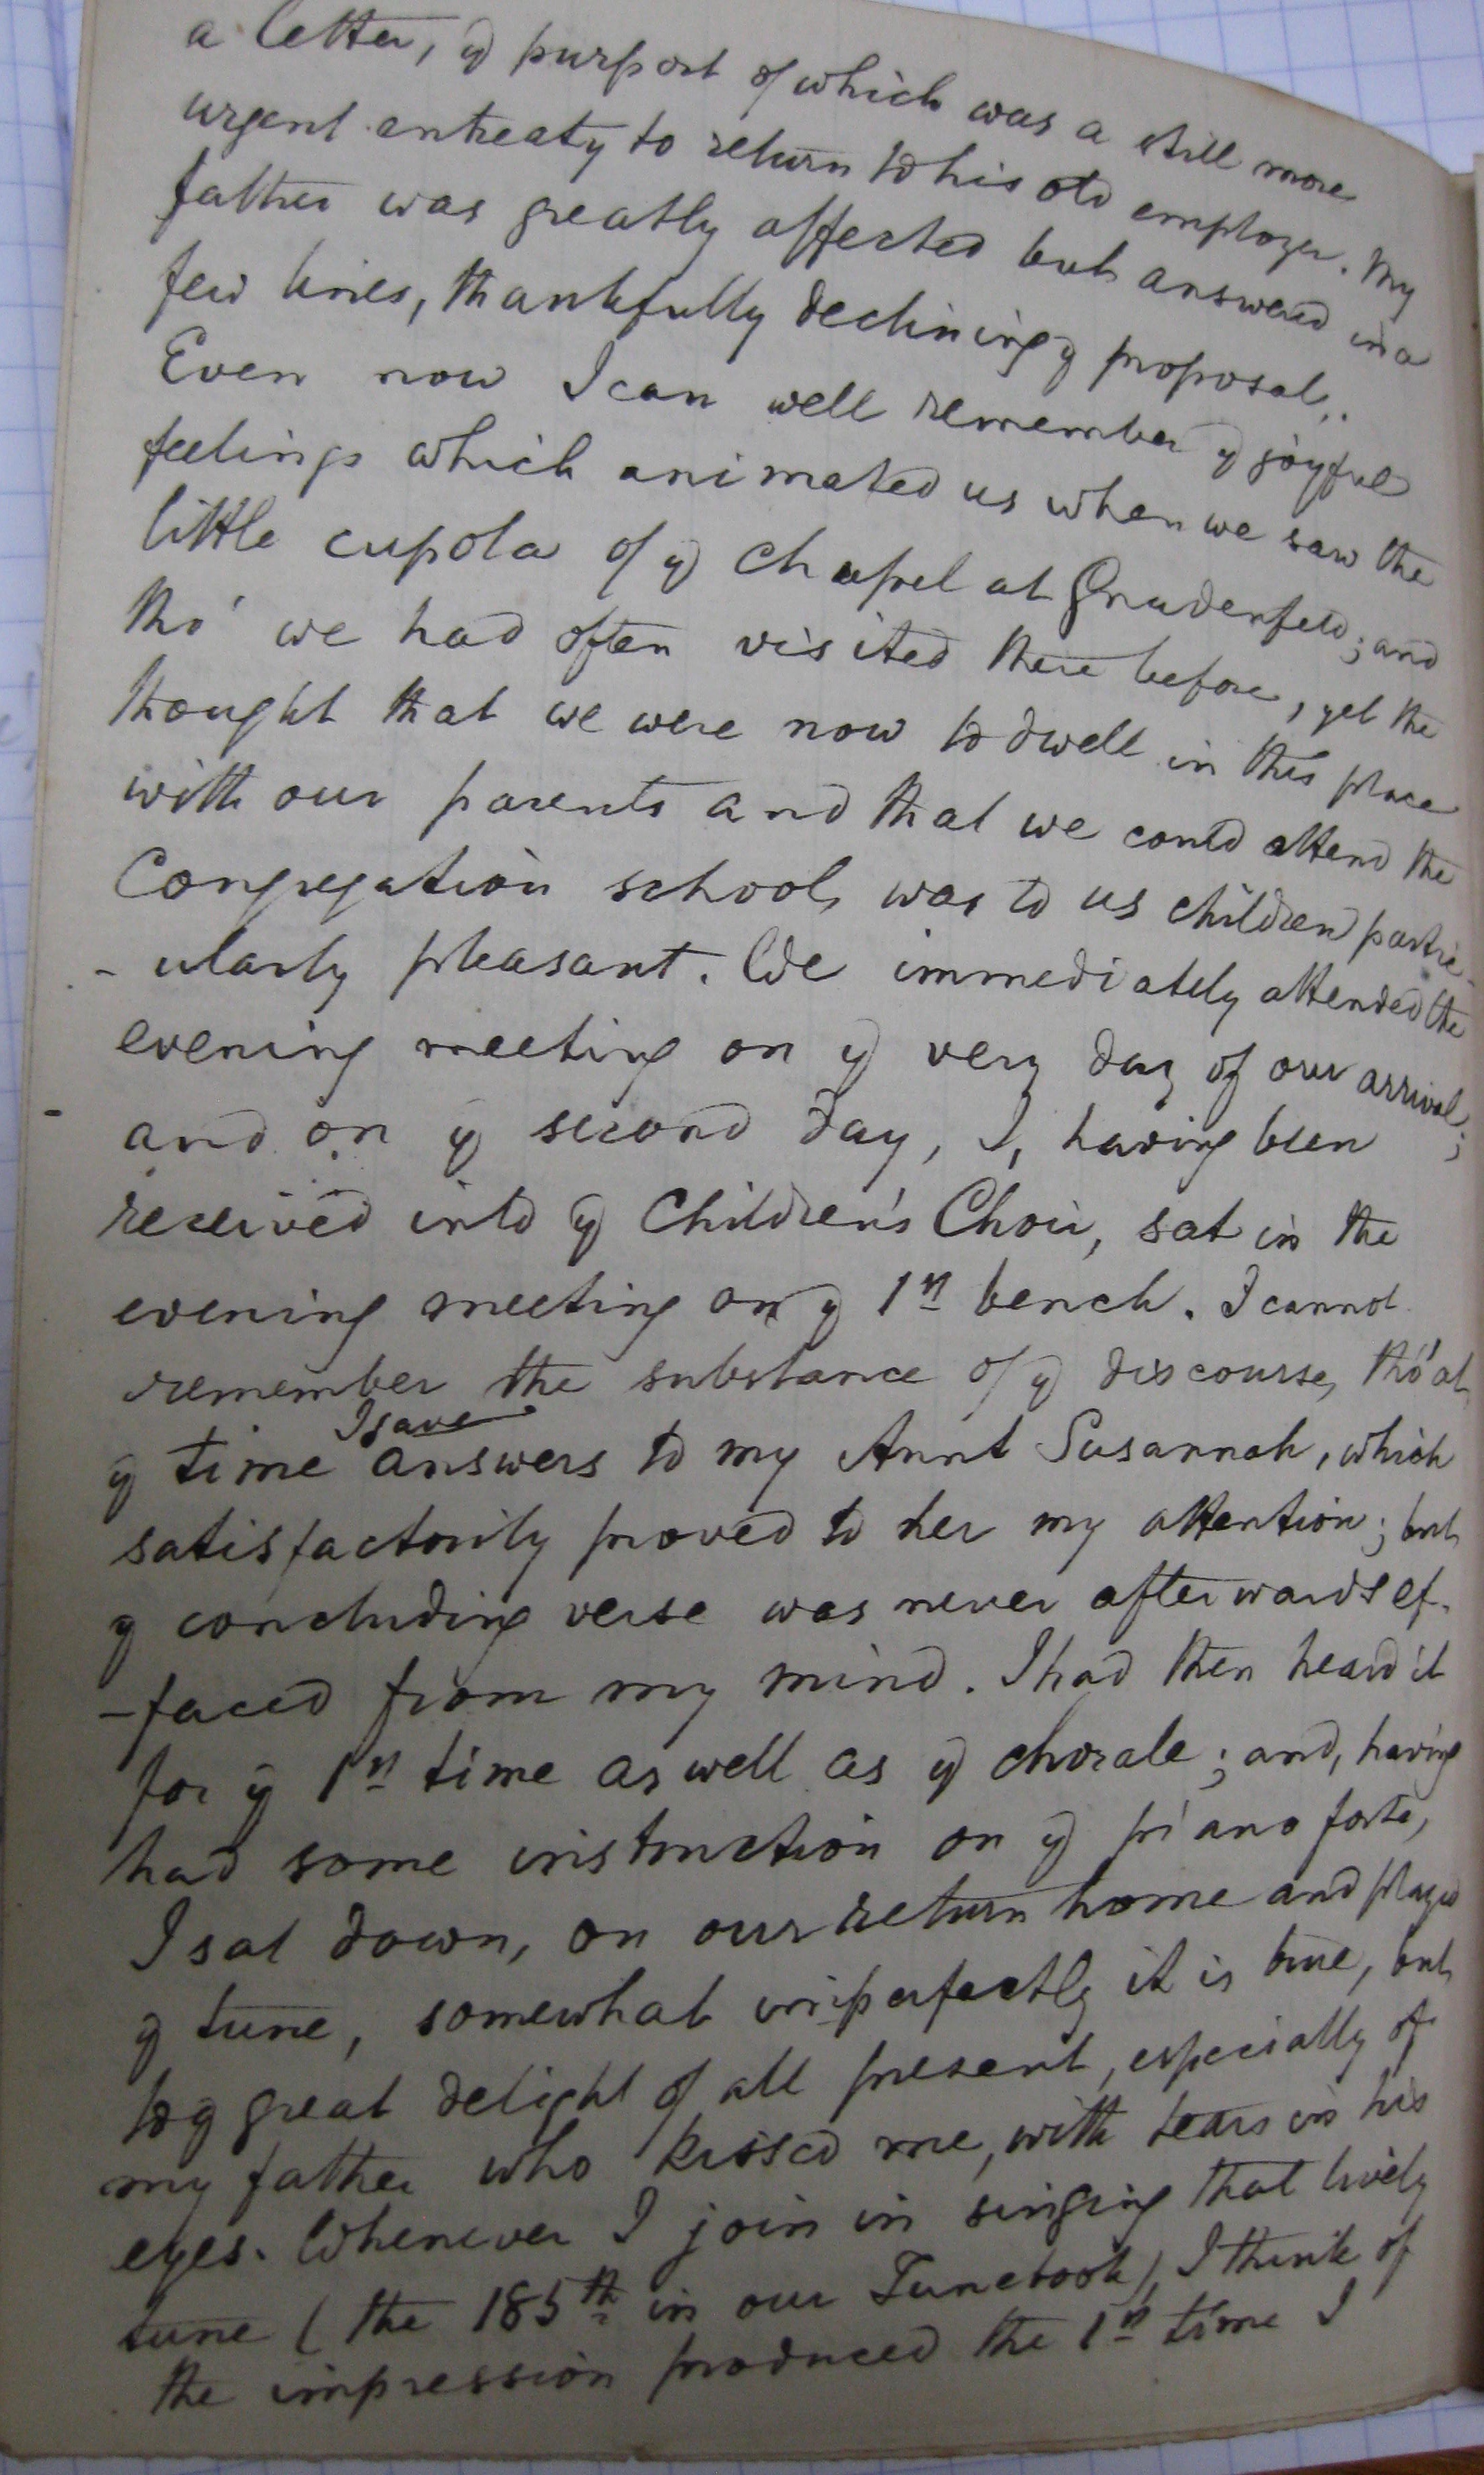 a letter, yͤ purport of which was a still more
urgent entreaty to return to his old employer. My
father was greatly affected but answered in a
few lines, thankfully declining yͤ proposal.
Even now I can well remember yͤ joyful
feelings which animated us when we saw the
little cupola of yͤ chapel at Gnadenfeld; and
tho' we had often visited there before, yet the
thought that we were now to dwell in this place
with our parents and that we could attend the
Congregation school, was to us children partic-
-ularly pleasant. We immediately attended the
evening meeting on yͤ very day of our arrival;
and on yͤ second day, I, having been
received into yͤ Children's Choir, sat in the
evening meeting on yͤ 1st bench. I cannot
remember the substance of yͤ discourse, tho' at
yͤ time I gave answers to my Aunt Susannah, which
satisfactorily proved to her my attention; but
yͤ concluding verse was never afterwards ef-
-faced from my mind. I had then heard it
for yͤ 1st time as well as yͤ chorale; and, having
had some instruction on yͤ piano forte,
I sat down, on our return home and played
yͤ tune, somewhat imperfectly it is true, but
to yͤ great delight of all present, especially of
my father who kissed me, with tears in his
eyes. Whenever I join in singing that lively
tune (the 185th in our Tunebook), I think of
the impression produced the 1st time I